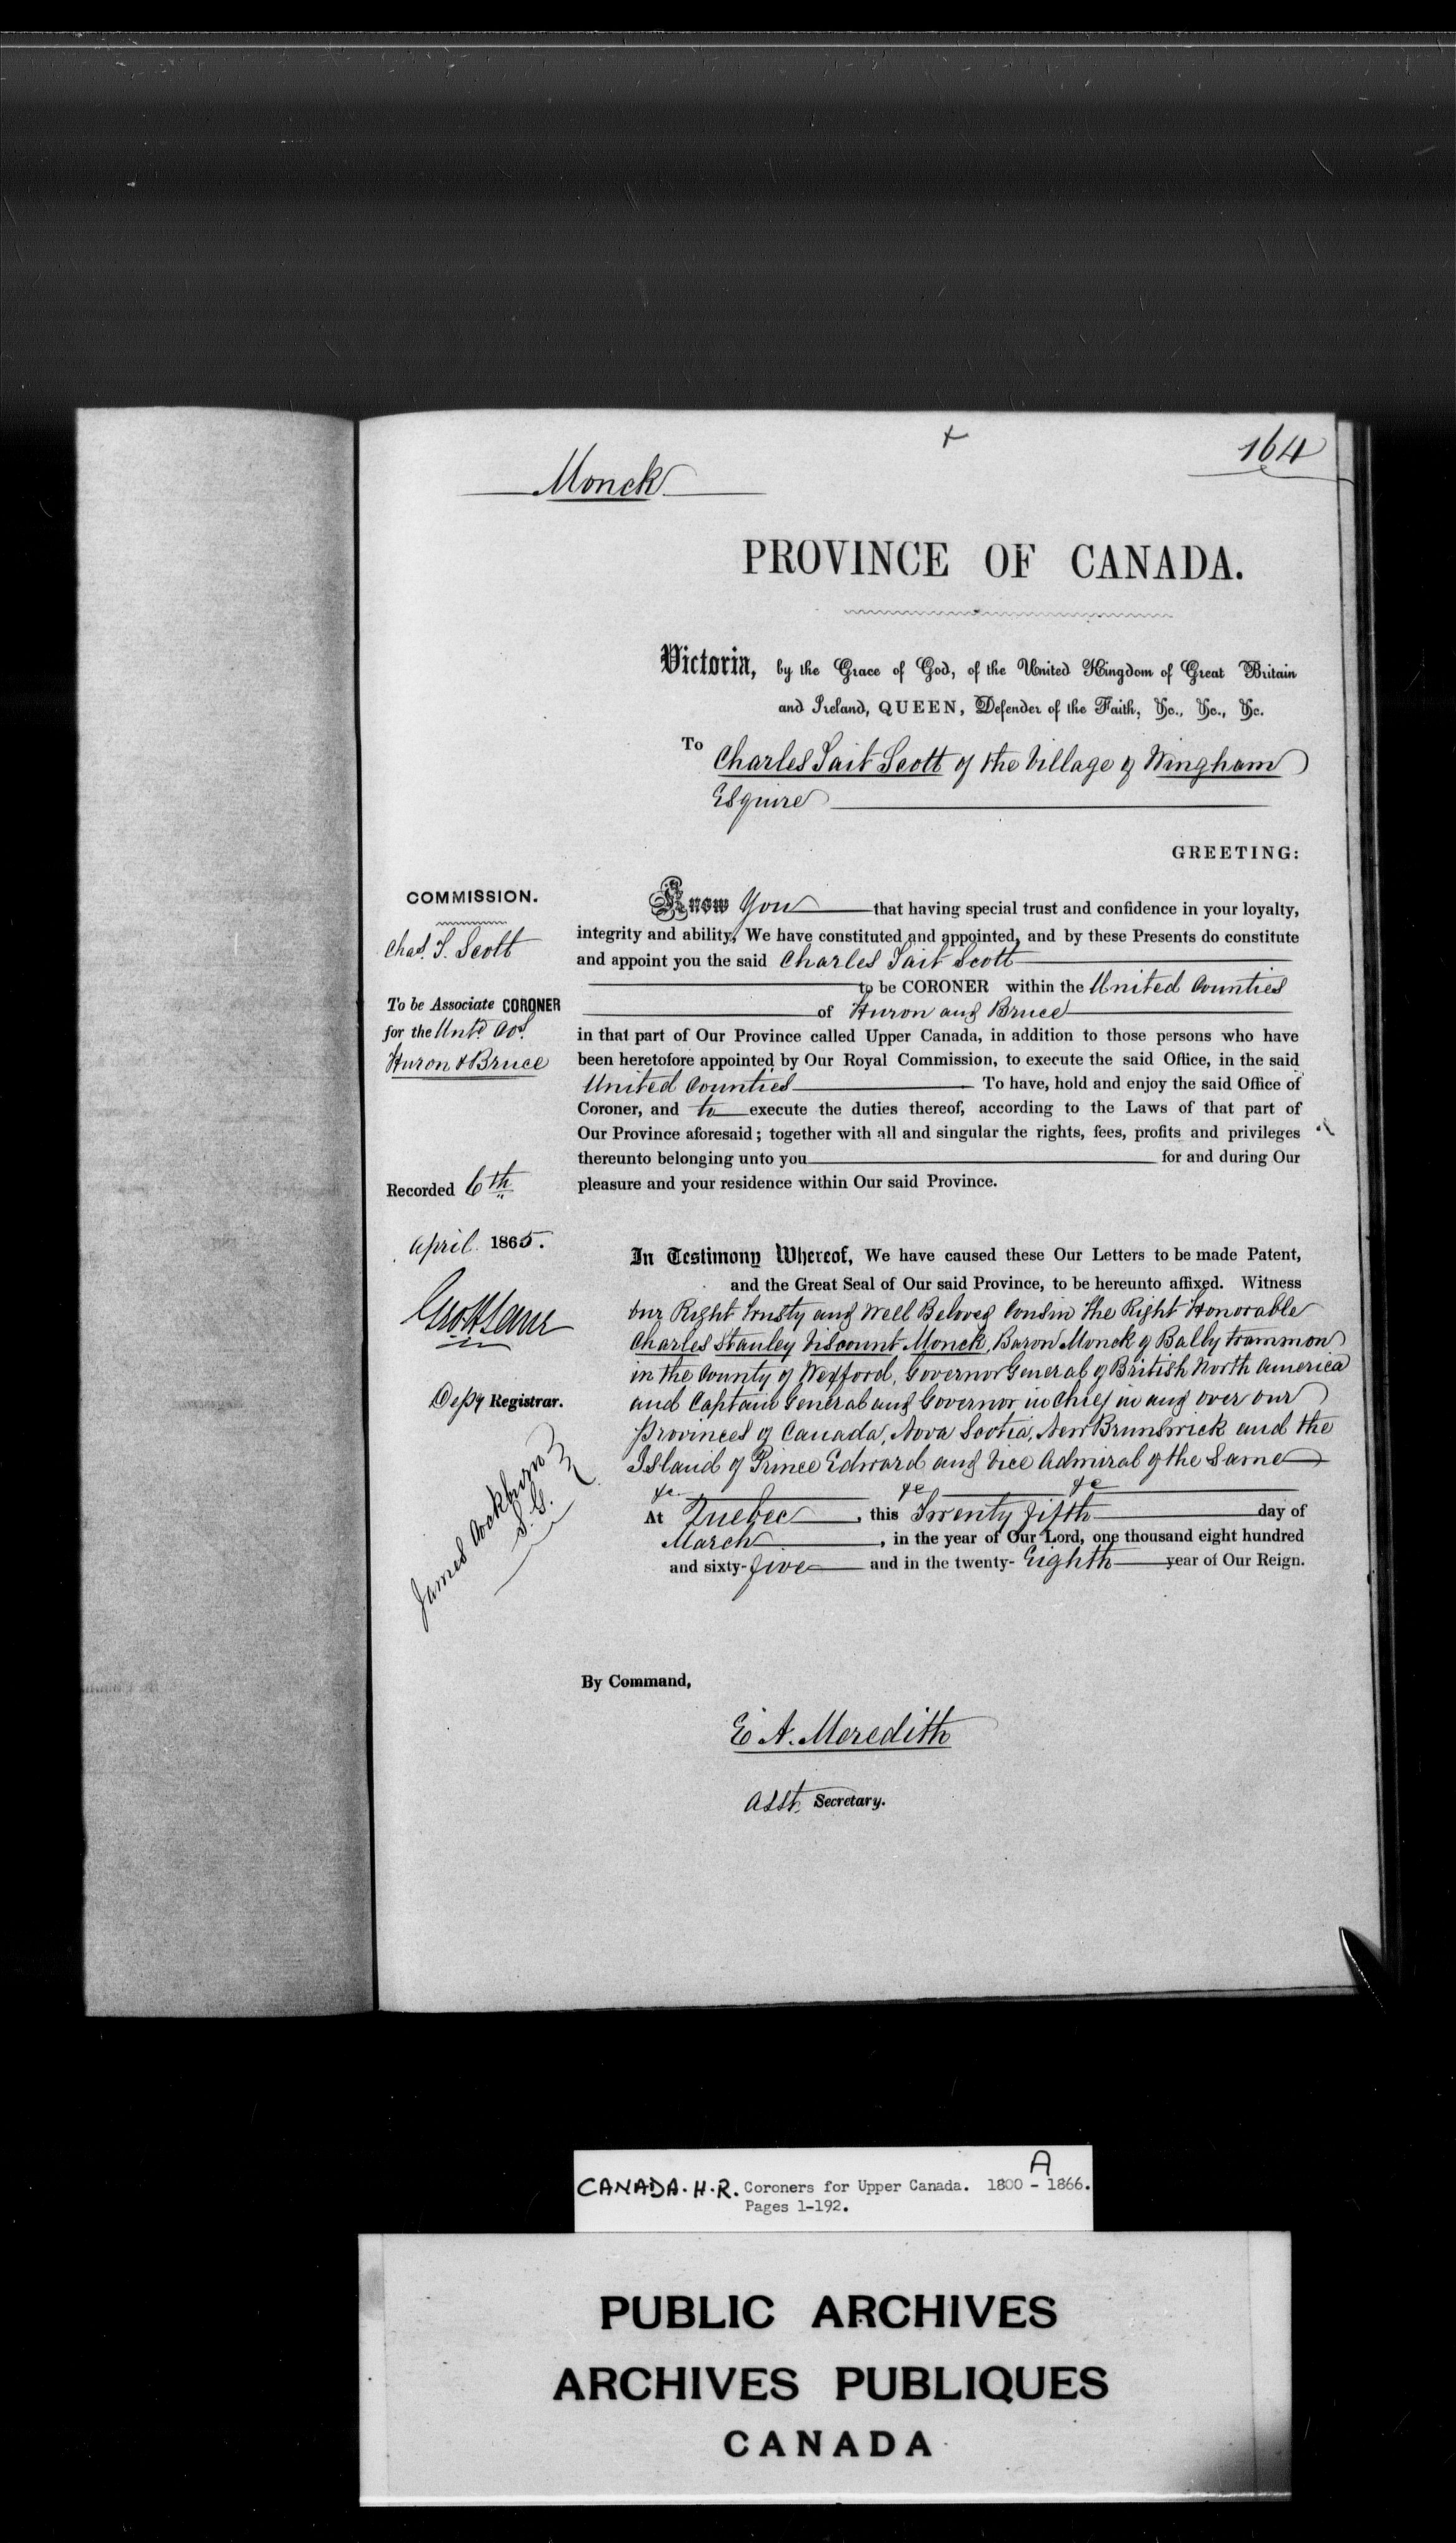 164
Monck
PROVINCE OF CANADA.
Victoria, by the Grace of God, of the United Kingdom of Great Britain
and Ireland, QUEEN, Defender of the Faith, &c., &c., &c.
To Charles Tait Scott of the Village of Wingham
Esquire
GREETING:
COMMISSION.
Chas. T. Scott
To be Associate CORONER
for the Untd Cos.
Huron & Bruce
Recorded 6th
April 1865.
Depy Registrar.
James Cockburn
S. G.
Know You that having special trust and confidence in your loyalty,
integrity and ability, We have constituted and appointed, and by these Presents do constitute
and appoint you the said Charles Tait Scott
to be CORONER within the United Counties
of Huron and Bruce
in that part of Our Province called Upper Canada, in addition to those persons who have
been heretofore appointed by Our Royal Commission, to execute the said Office, in the said
United Counties To have, hold and enjoy the said Office of
Coroner, and to execute the duties thereof, according to the Laws of that part of
Our Province aforesaid; together with all and singular the rights, fees, profits and privileges
thereunto belonging unto you for and during Our
pleasure and your residence within Our said Province.
In Testimony Whereof, We have caused these Our Letters to be made Patent,
and the Great Seal of Our said Province, to be hereunto affixed. Witness
Our Right Trusty and Well Beloved Cousin The Right Honorable
Charles Stanley Viscount Monck, Baron Monck of Bally trammon
in the County of Wexford, Governor General of British North America
and Captain General and Governor in Chief in and over our
Provinces of Canada, Nova Scotia, New Brunswick and the
Island of Prince Edward and Vice Admiral of the Same
&c &c &c
At Quebec, this Twenty fifth day of
March, in the year of Our Lord, one thousand eight hundred
and sixty-five and in the twenty-Eighth year of Our Reign.
By Command,
E A. Meredith
Asst. Secretary.
CANADA. H.R. Coroners for Upper Canada. 1800 - 1866. A
Pages 1-192.
PUBLIC ARCHIVES
ARCHIVES PUBLIQUES
CANADA